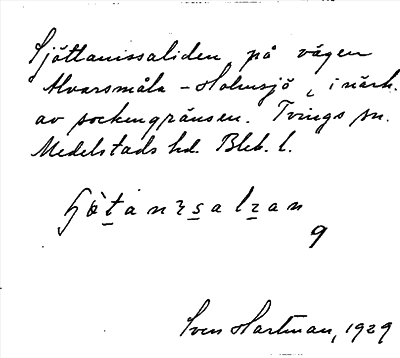 Sjötlanissaliden på vägen
Alvarsmåla - Holmsjö, i närh.
av sockengränsen. Tvings sn.
Medelstads hd. Blek. l.
9
Sven Hartman, 1929